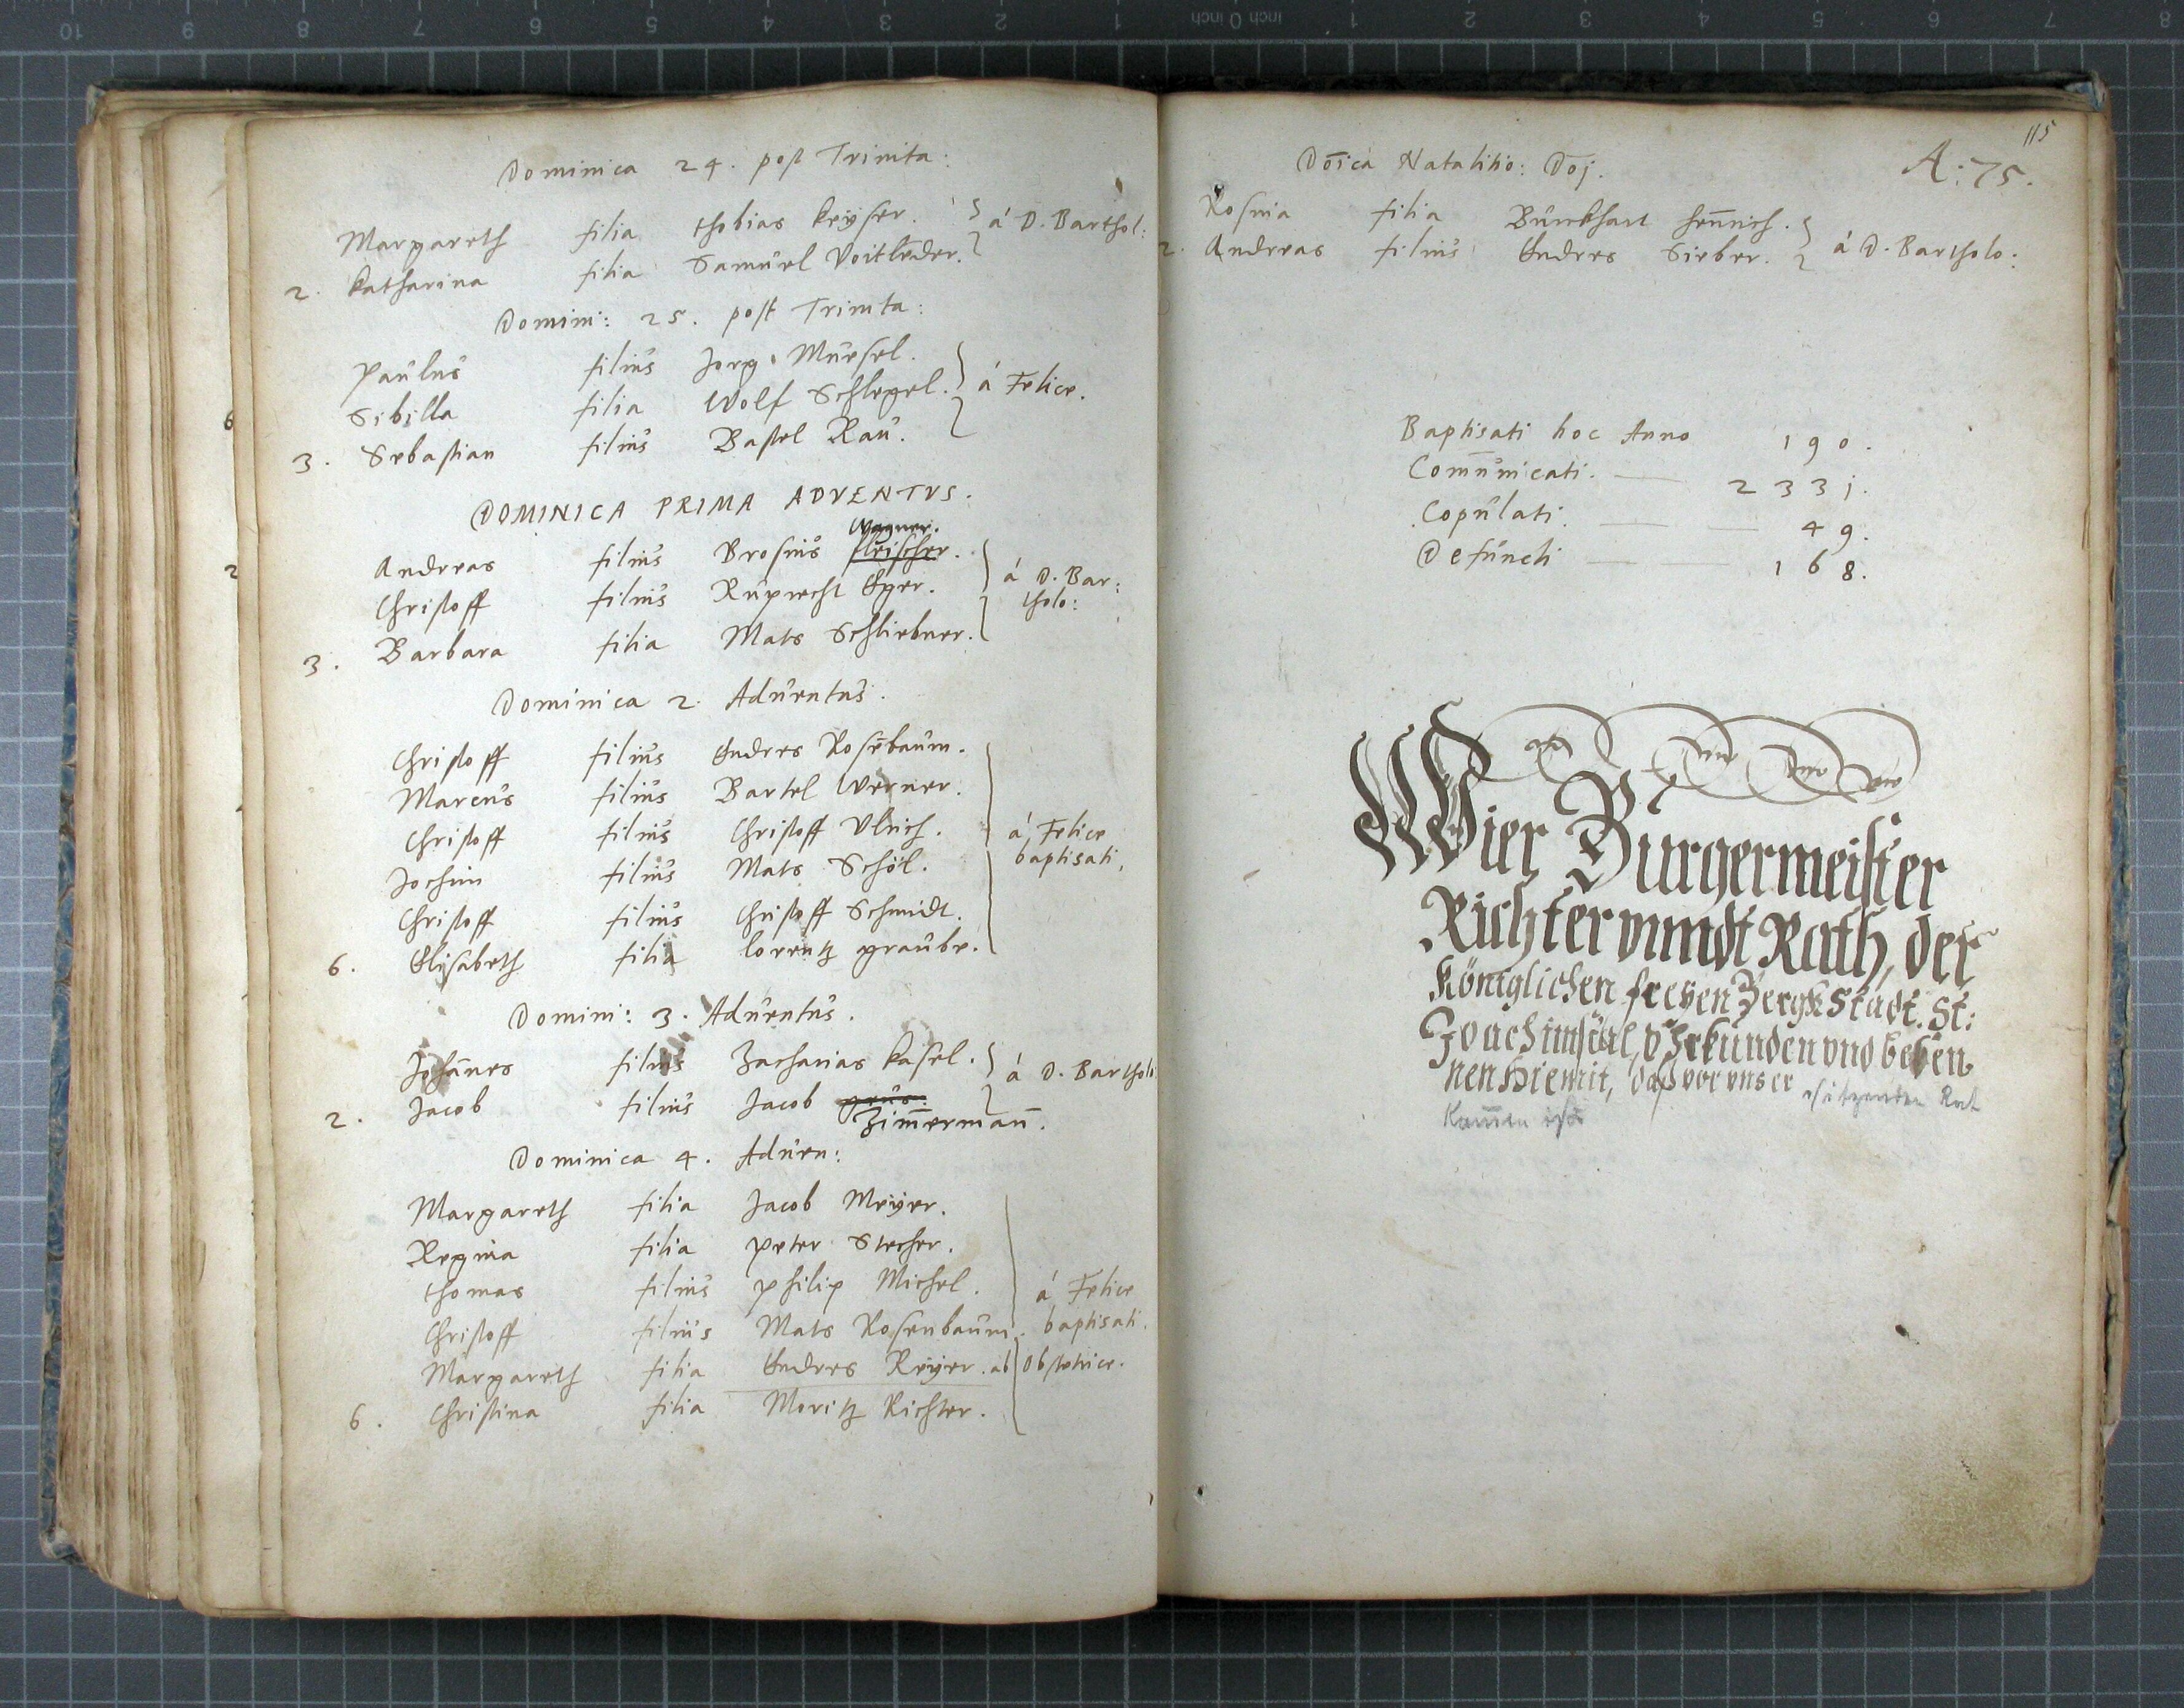 Dominica 24. post Trinita:
Margareth filia thobias keÿser. á D. Barthol:
2. katharina filia Samuel Voitleder.
Domini: 25. post Trinita:
Paulus filius Jorg Meusel.
Sibilla filia Wolf Schlegel. á Felice.
3. Sebastian filius Bastel Rau.
DOMINICA PRIMA ADVENTVS.
Wagner.
Andreas filius Brosius fleischer.
Christoff filius Ruprecht Eger. á D. Bar:
tholo:
3. Barbara filia Mats Schliebner.
Dominica 2. Aduentus.
Christoff filius Endres Rosēbaum.
Marcus filius Bartel Werner.
Christoff filius Christoff Vlrich. á Felice
Jochim filius Mats Schöl. baptisati.
Christoff filius Christoff Schmidt.
6. Elisabeth filia lorentz graube.
Domini: 3. Aduentus.
Johānes filius Zacharias kasel. á D. Bartholo
2. Jacob filius Jacob
Zim̄erman̄.
Dominica 4. Aduen:
Margareth filia Jacob Meÿer.
Regina filia peter Stecher.
thomas filius philip Michel. á Felice
Christoff filius Mats Rosenbaum. baptisati.
Margareth filia Endres Reÿer. ab Obstetrice.
6. Christina filia Moritz Richter.
115
Dōica Natalitio: Doj. A: 75.
Rosina filia Burckhart hen̄rich.
2. Andreas filius Endres Sieber. á D. Bartholo:
Baptisati hoc Anno 190.
Com̄unicati. 233j.
Copulati. 49.
Defuncti 168.
Wier Burgermeister
Richter vnndt Rath, der
Königlichen freyen Bergk Stadt. St:
Joachimsthal, vhrkunden vnd beken
nen hiemit, daß vor vnser sitzenden Rat
kam̄en ist